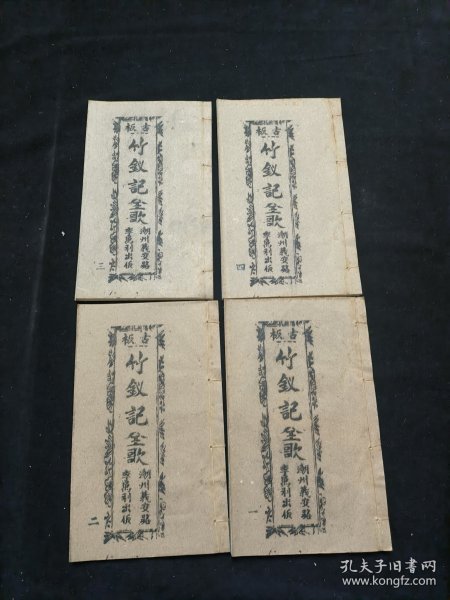 古板
竹釵記全歌
潮州義安路
李萬利出版
三
古板
竹釵記全歌
潮州義安路
李萬利出版
四
古板
竹釵記全歌
潮州義安路
李萬利出版
二
古板
竹釵記全歌
潮州義安路
李萬利出版
一
孔夫子旧书网
www.kongfz.com